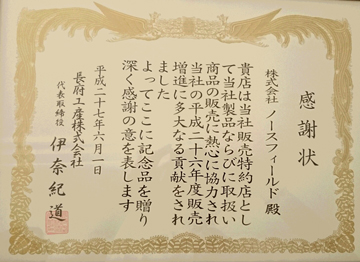 感謝状
株式会社 ノースフィールド 殿
貴店は当社販売特約店とし
て当社製品ならびに取扱い
商品の販売に熱心に協力され
当社の平成二十六年度販売
増進に多大なる貢献をされ
ました
よってここに記念品を贈り
深く感謝の意を表します
平成二十七年六月一日
長府工産株式会社
代表取締役 伊奈紀道